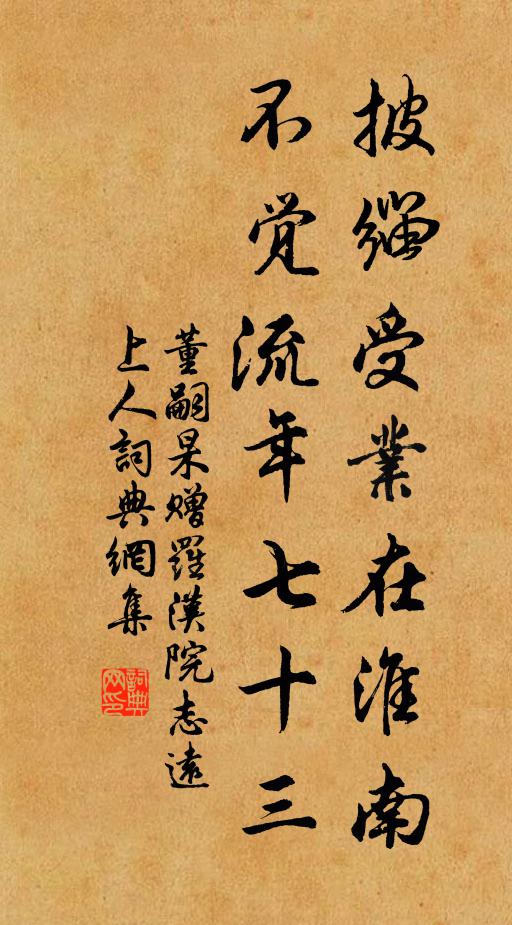 披缁受業在淮南
不觉流年七十三
董嗣杲贈羅漢院志遠
上人詞典網集
詞典网印